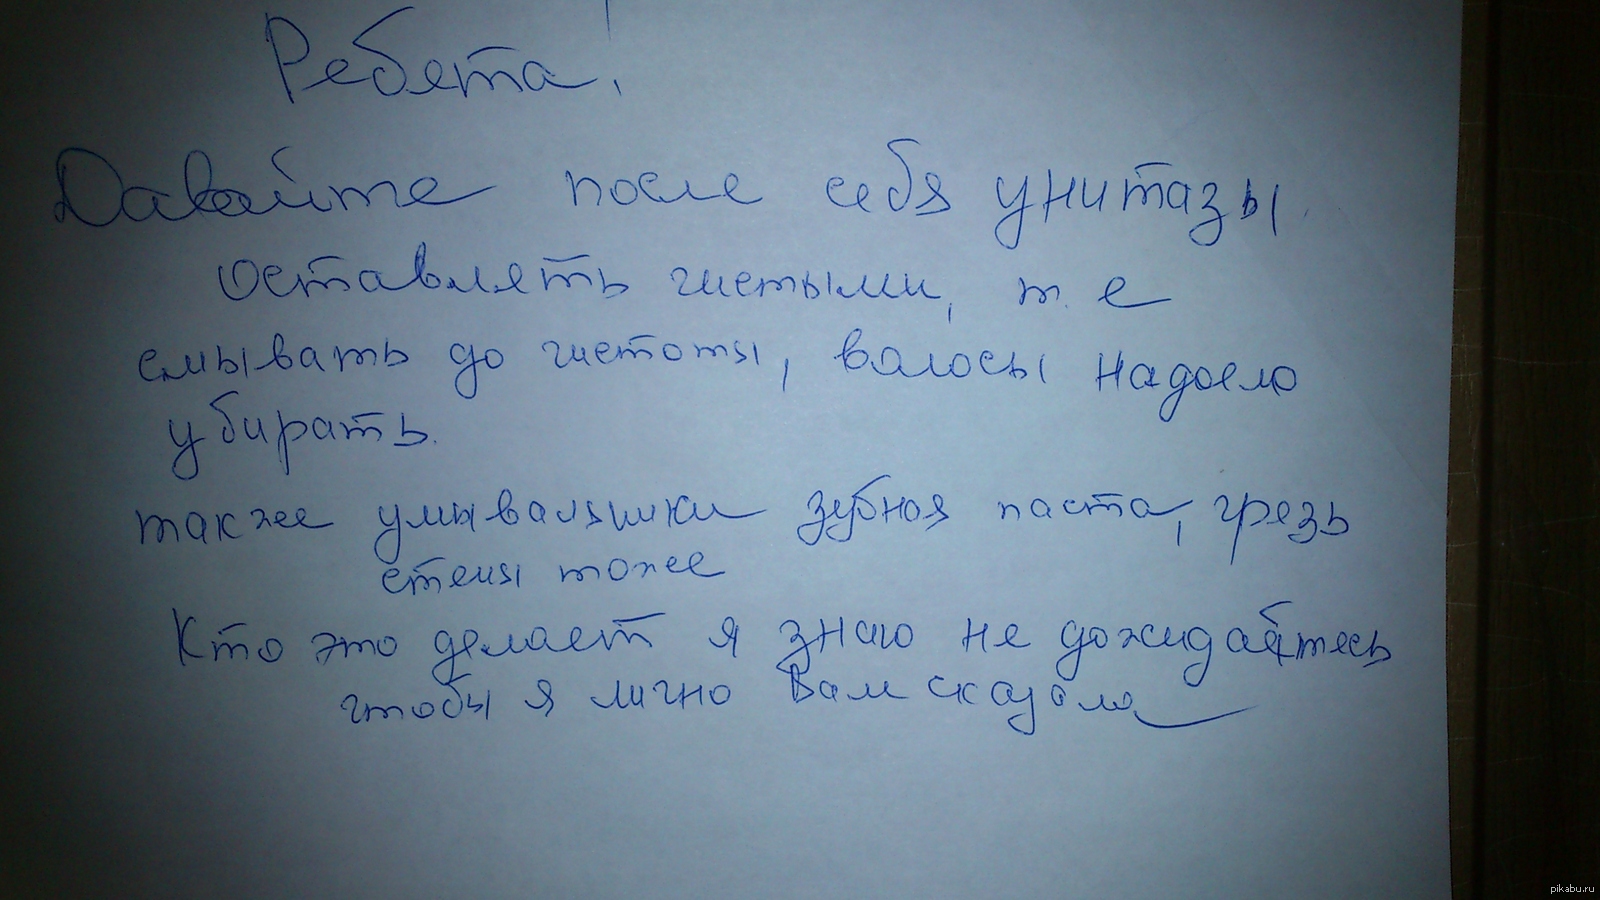 Ребята!
Давайте после себя унитазы
оставлять чистыми, т. е
смывать до чистоты, валосы надоело
убирать.
также умывальники зубная паста, грезь
стены тоже
Кто это делает я знаю не дожидайтесь
чтобы я лично Вам сказала
pikabu.ru